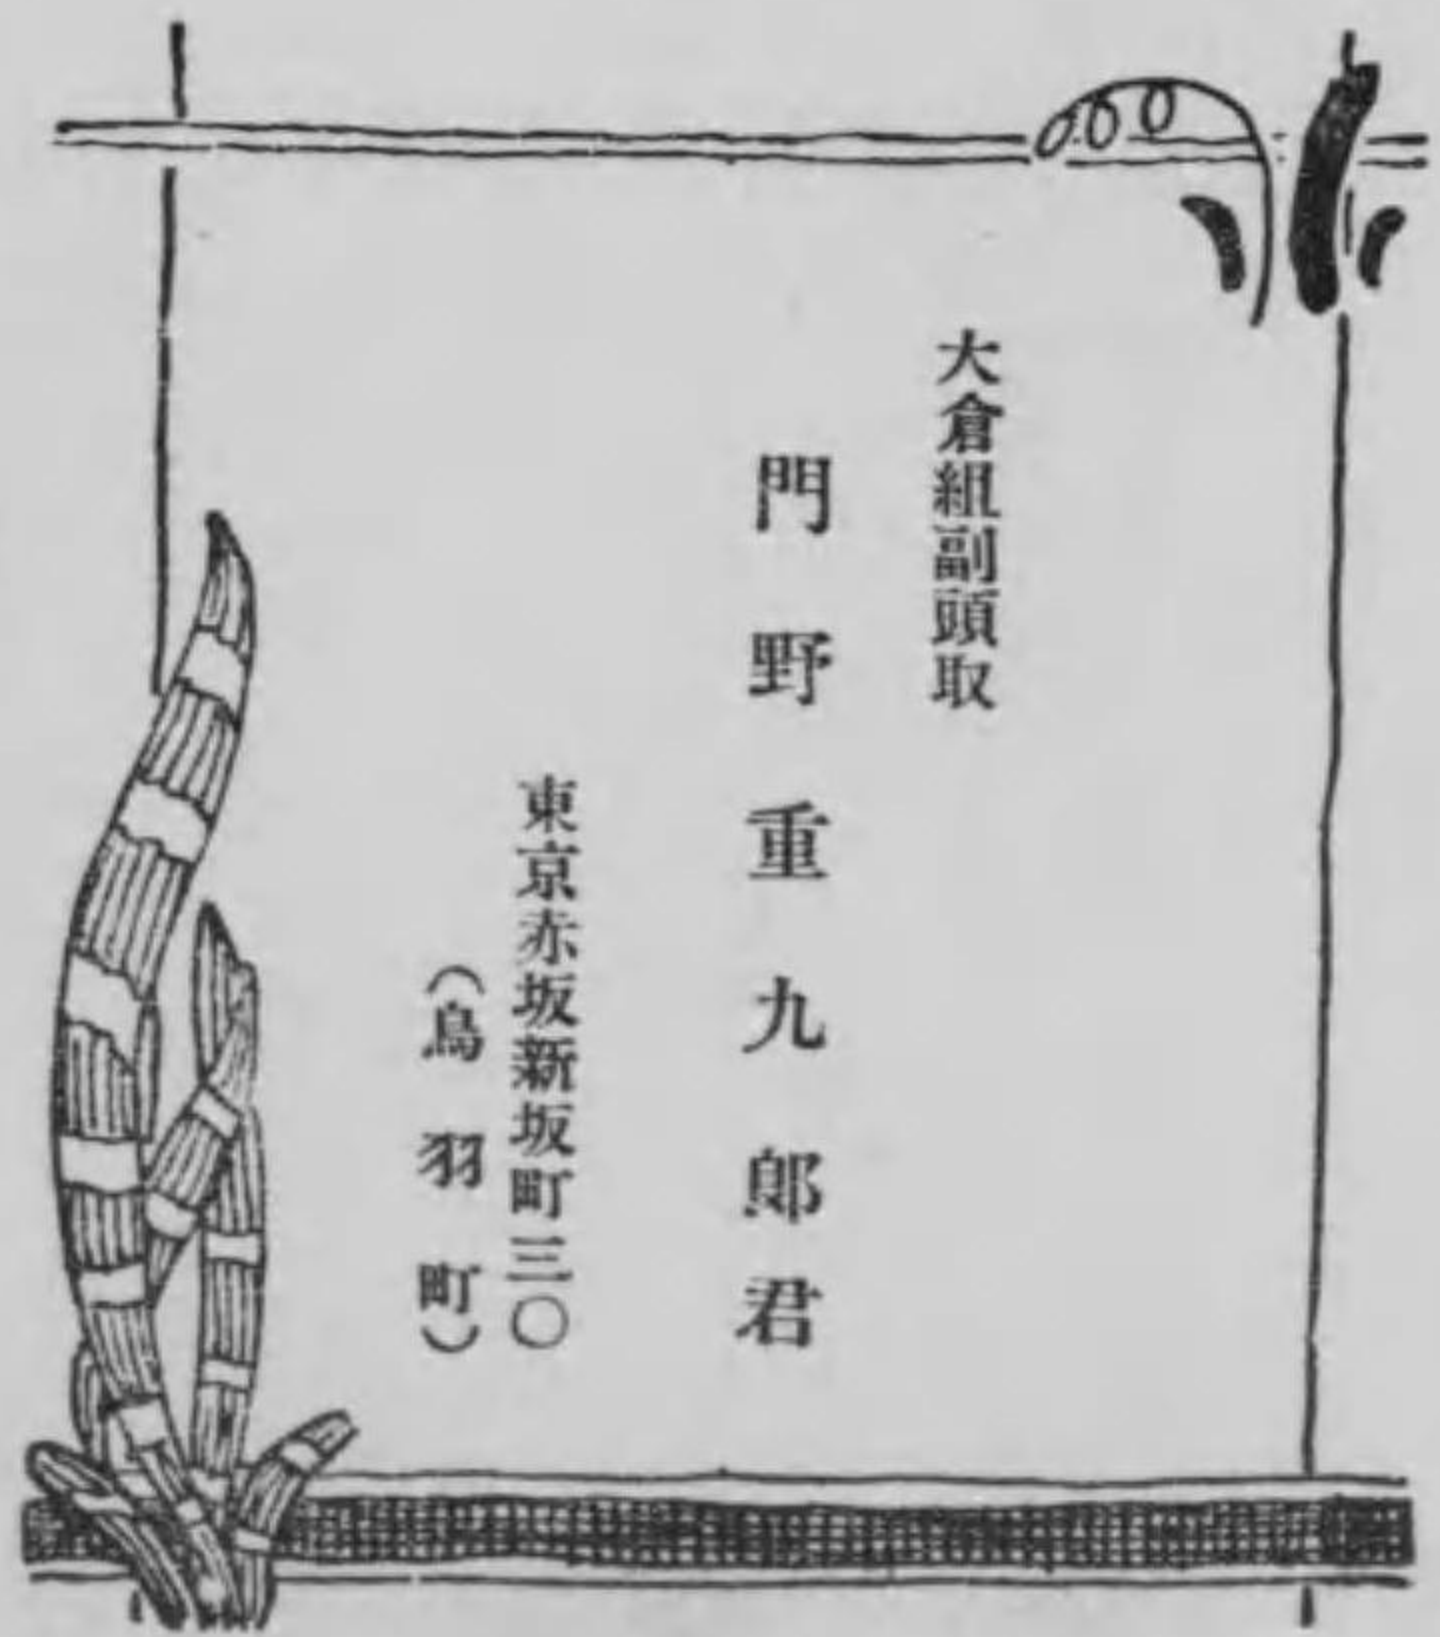 大倉組副頭取
門野重九郎君
東京赤坂新坂町三〇
(鳥羽町)